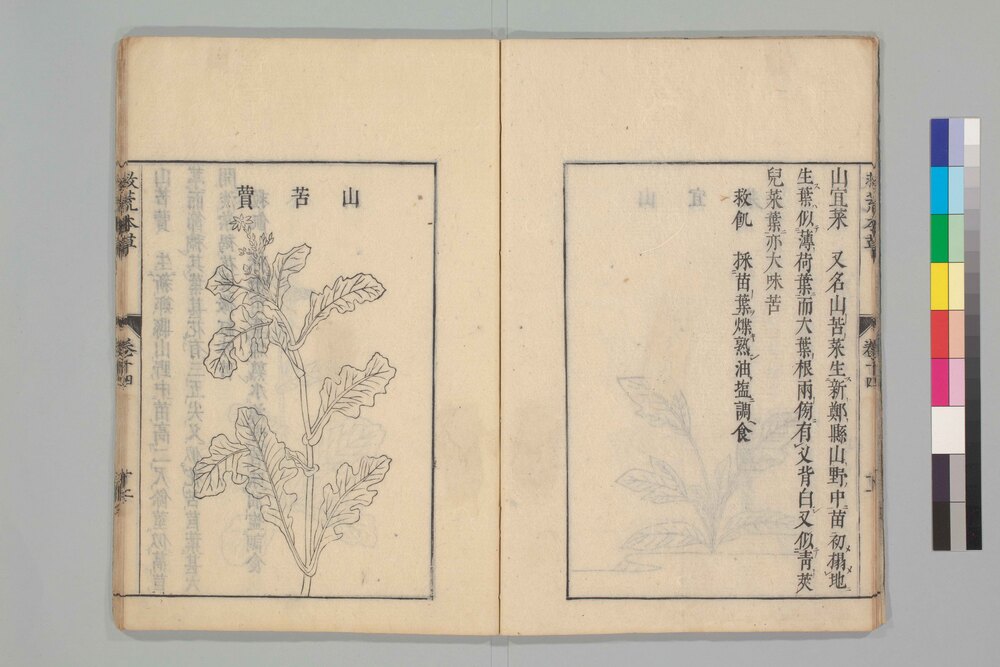 山宜菜　又名山苦菜生新鄭縣山野中苗初搨地
生葉似薄荷葉而大葉根兩傍有叉背白又似青莢
兒菜葉亦大味苦
救飢　採苗葉煠熟油塩調食
救荒本草
卷十四
山苦蕒
救荒本草
卷十四